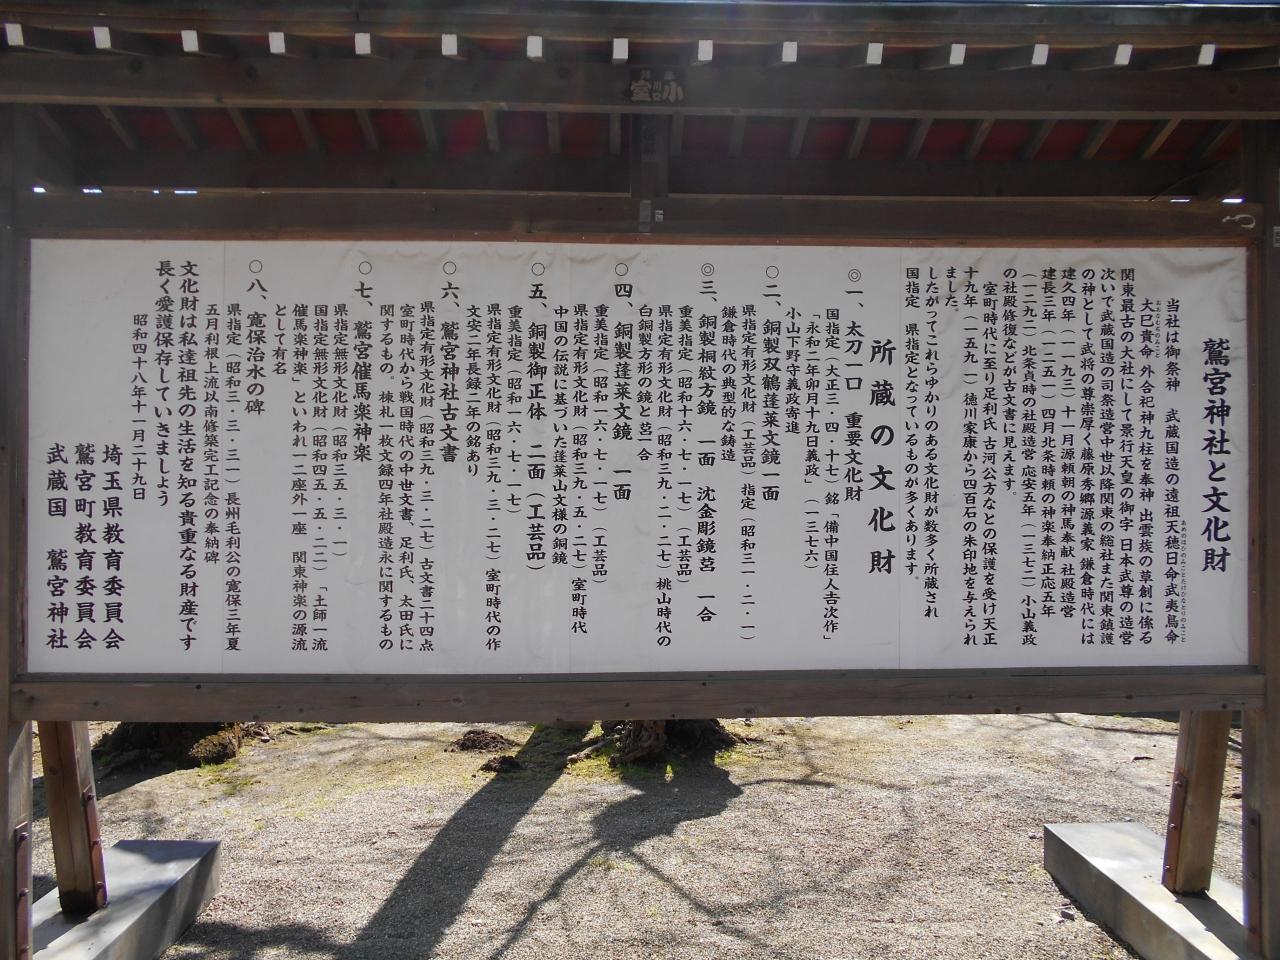 鷲宮神社と文化財
当社は御祭神　武蔵国造の遠祖天穂日命武夷鳥命
大巳貴命外合祀神九柱を奉神　出雲族の草創に係る
関東最古の大社にして景行天皇の御字　日本武尊の造営
次いで武蔵国造の司祭造営中世以降関東の総社また関東鎮護
の神として武将の尊崇厚く藤原秀郷源義家　鎌倉時代には
建久四年（一一九三）十一月源頼朝の神馬奉献社殿造営
建長三年（一二五一）四月北条時頼の神楽奉納正応五年
（一二九二）北条貞時の社殿造営　応安五年（一三七二）小山義政
の社殿修復などが古文書に見えます。
室町時代に至り足利氏　古河公方なとの保護を受け天正
十九年（一五九一）徳川家康から四百石の朱印地を与えられ
ました。
したがってこれらゆかりのある文化財が数多く所蔵され
国指定　県指定となっているものが多くあります。
所蔵の文化財
◎一、太刀一口　重要文化財
国指定（大正三・四・十七）銘「備中国住人吉次作」
「永和二年卯月十九日義政」（一三七六）
小山下野守義政寄進
〇二、銅製双鶴蓬莱文鏡一面
県指定有形文化財（工芸品）指定（昭和三一・二・一）
鎌倉時代の典型的な鋳造
◎三、銅製桐紋方鏡　一面　沈金彫鏡筥　一合
重美指定（昭和十六・七・一七）（工芸品）
県指定有形文化財（昭和三九・二・二七）桃山時代の
白銅製方形の鏡と筥一合
〇四、銅製蓬莱文鏡　一面
重美指定（昭和一六・七・一七）（工芸品）
県指定有形文化財（昭和三九・五・二七）室町時代
中国の伝説に基づいた蓬莱山文様の銅鏡
〇五、銅製御正体　二面（工芸品）
重美指定（昭和一六・七・一七）
県指定有形文化財（昭和三九・三・二七）室町時代の作
文安二年長録二年の銘あり
〇六、鷲宮神社古文書
県指定有形文化財（昭和三九・三・二七）古文書二十四点
室町時代から戦国時代の中世文書、足利氏、太田氏に
関するもの。棟札一枚文録四年社殿造永に関するもの
〇七、鷲宮催馬楽神楽
県指定無形文化財（昭和三五・三・一）
国指定無形文化財（昭和四五・五・二二）「土師一流
催馬楽神楽」といわれ一二座外一座　関東神楽の源流
として有名
〇八、寛保治水の碑
県指定（昭和三・三・三一）長州毛利公の寛保三年夏
五月利根上流以南修築完工記念の奉納碑
文化財は私達祖先の生活を知る貴重なる財産です
長く愛護保存していきましよう
昭和四十八年十一月二十九日
埼玉県教育委員会
鷲宮町教育委員会
武蔵国　鷲宮神社